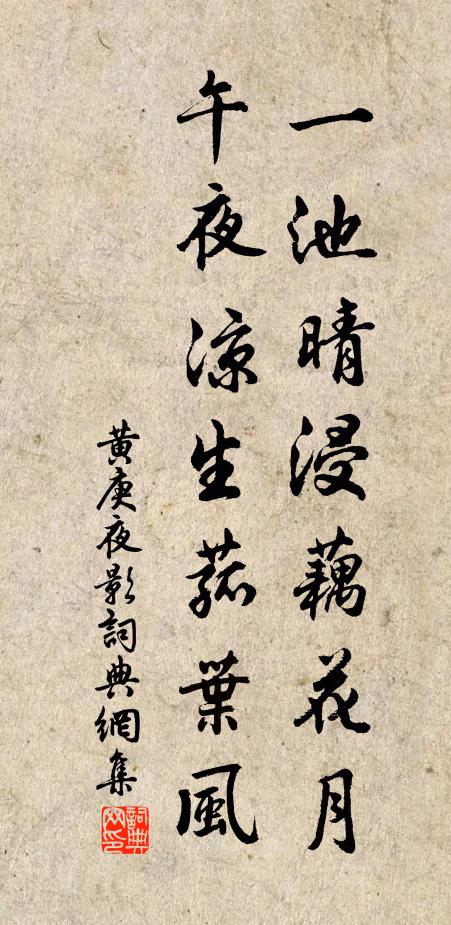 一池晴浸藕花月
午夜涼生菰葉風
黃庚夜影詞典網集
詞典网印